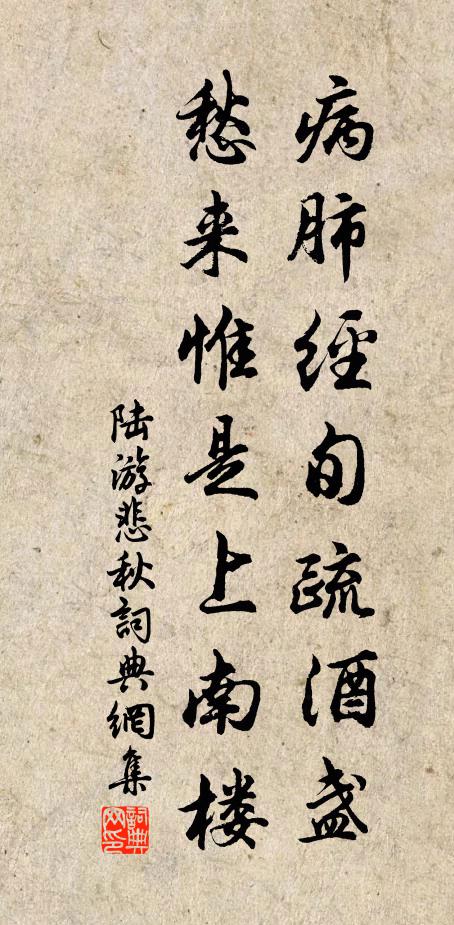 病肺經旬疏酒盏
愁来惟是上南楼
陆游悲秋詞典網集
詞典网印